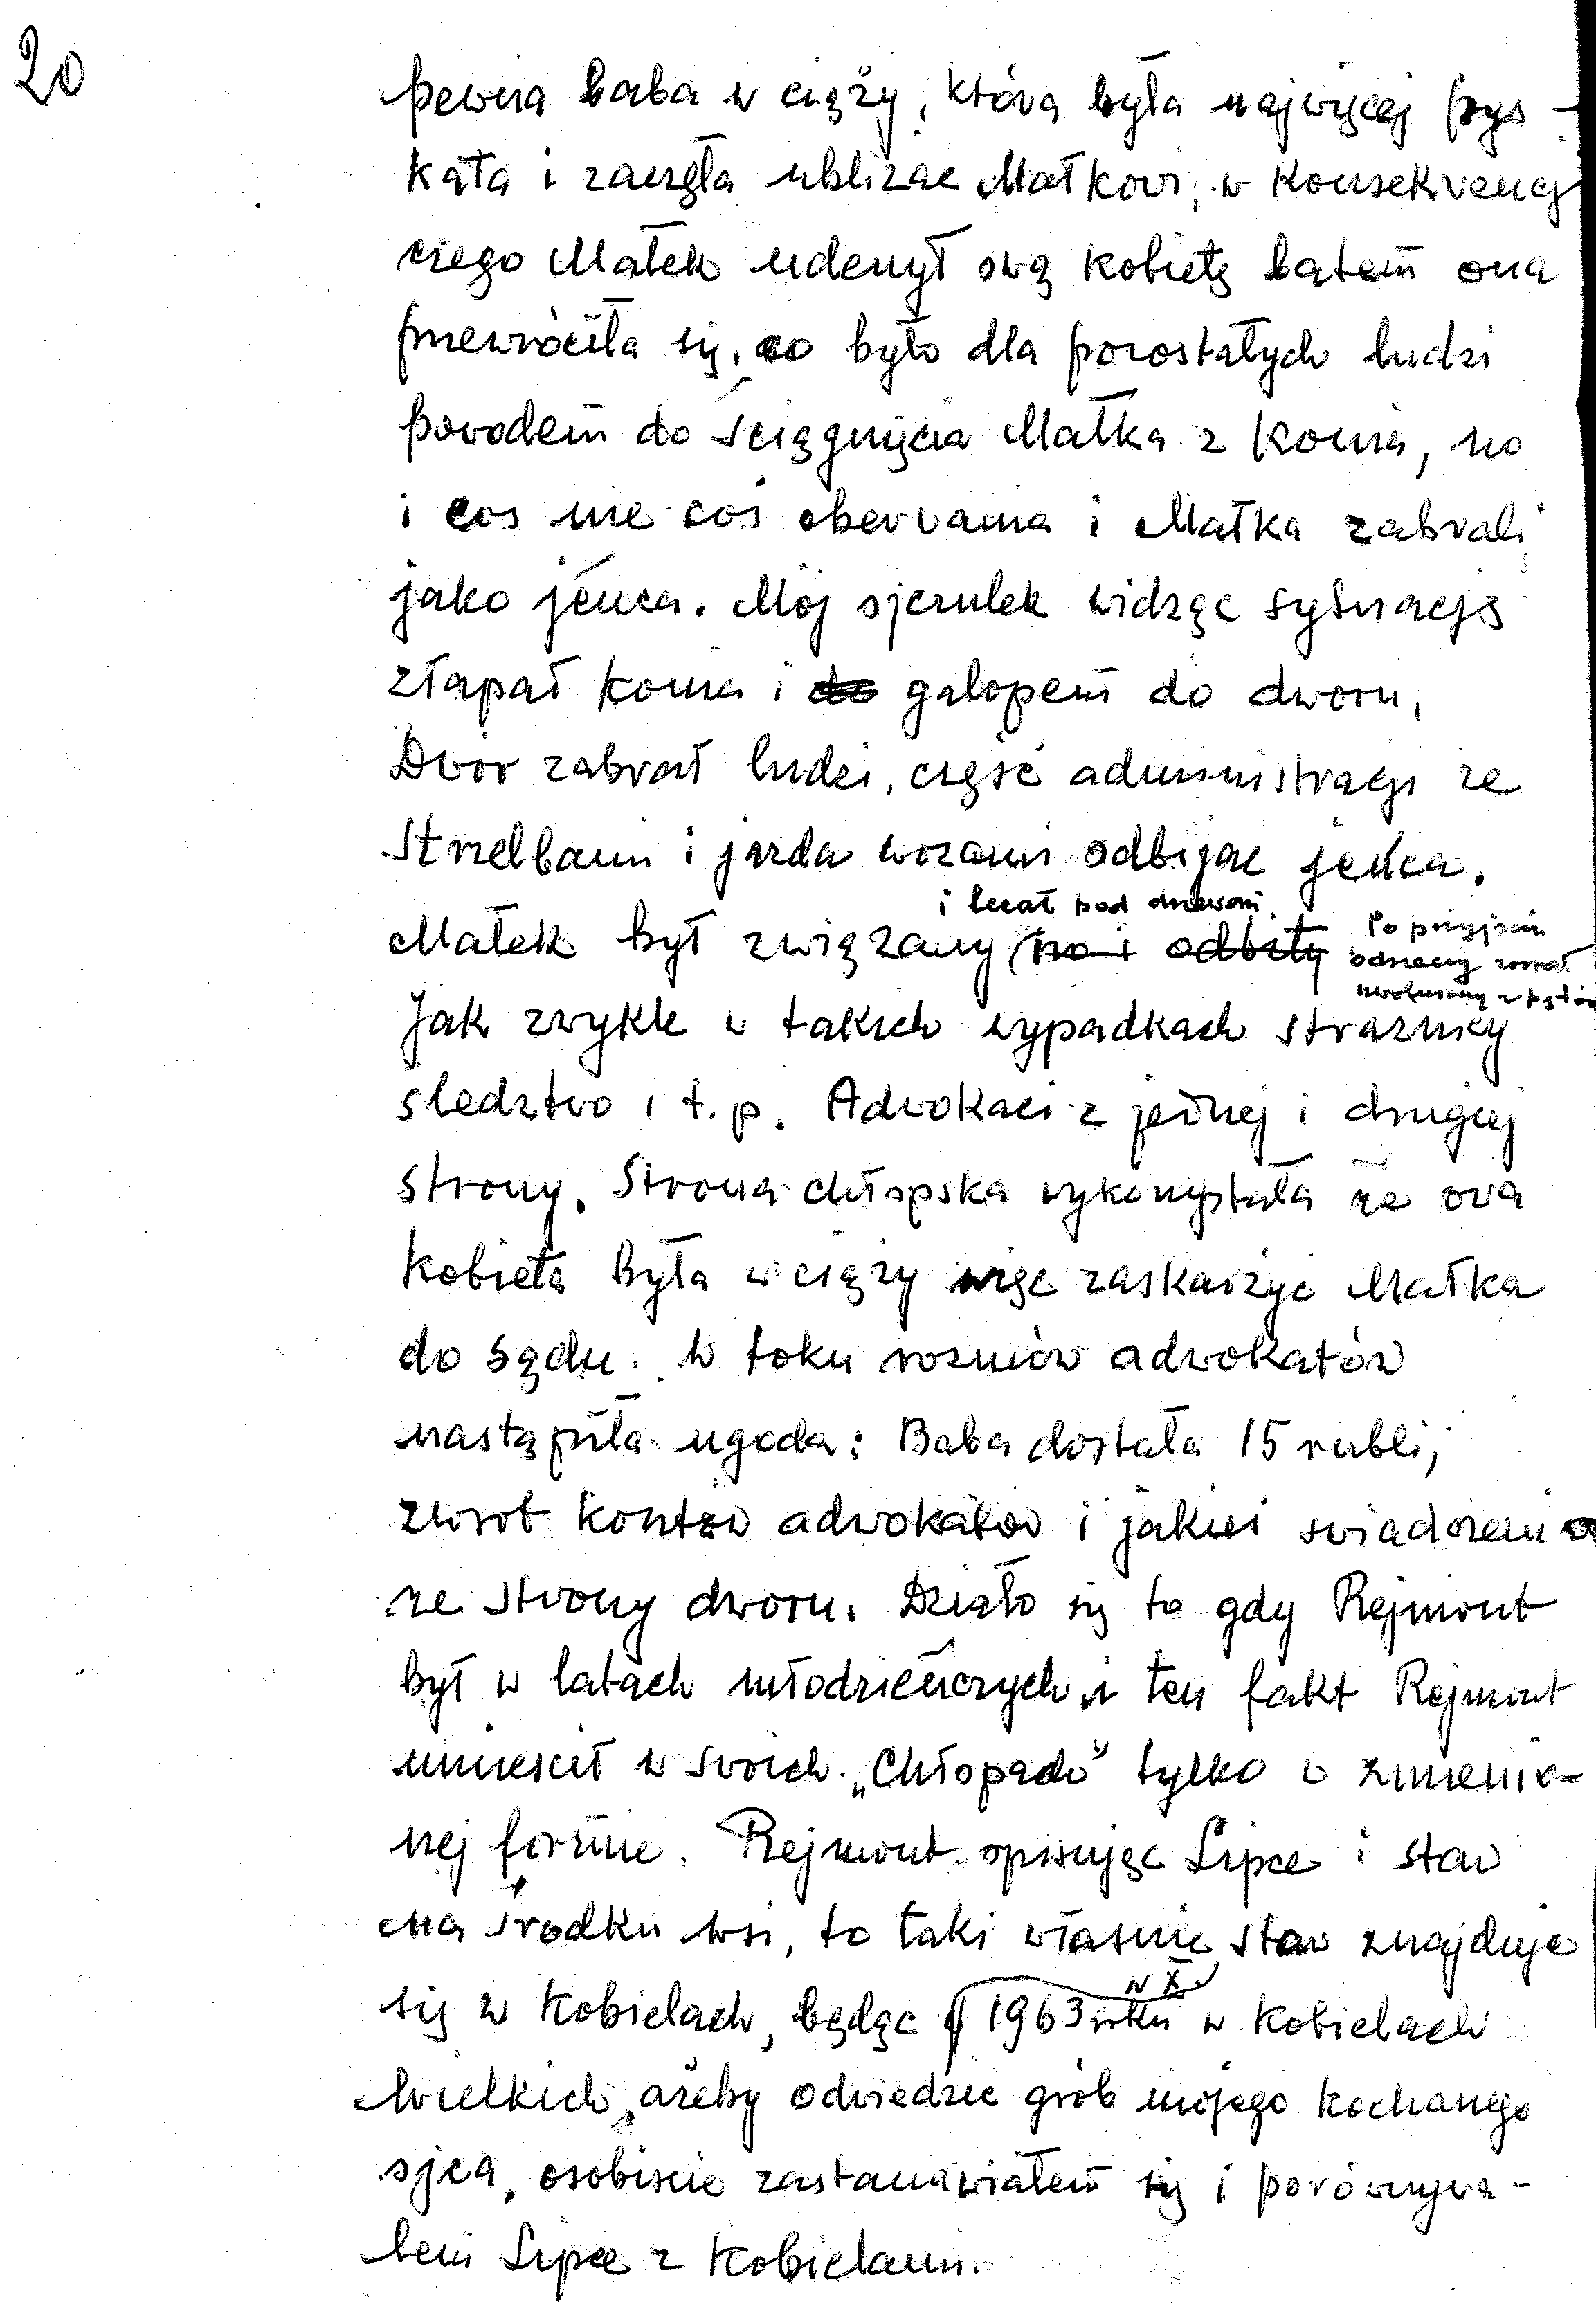 20
pewna baba w ciąży, która była najwięcej pys-
kata i zaczęła ubliżac Małkowi, w konsekwency
czego Małek uderzył ową kobietę batem ona
przewróciła się, co było dla pozostałych ludzi
powodem do ściągnięcia Małka z konia, no
i cos nie coś oberwania i Małka zabrali
jako jeńca. Mój ojczulek widząc sytuację
złapał konia i do galopem do dworu,
Dwór zabrał ludzi, część administracji ze
strzelbami i jazda wozami odbijac jeńca.
i leżał pod drzewem.
Małek był związany no i odbity
Po przyjściu
odsieczy został
uwolniony z pętów
Jak zwykle w takich wypadkach strażnicy
sledztwo i t.p. Adwokaci z jednej i drugiej
strony. Strona chłopska wykorzystała że owa
kobieta była w ciąży więc zaskarżyc Małka
do sądu. W toku rozmów adwokatów
nastąpiła ugoda: Baba dostała 15 rubli,
zwrot kosztów adwokatów i jakies swiadczenia
ze strony dworu. Działo się to gdy Rejmont
był w latach młodzieńczych i ten fakt Rejmont
umiescił w swoich „Chłopach” tylko w zmienio-
nej formie. Rejmont opisując Lipce i staw
na środku wsi, to taki własnie staw znajduje
się w Kobielach, będąc
w X.
1963 roku w Kobielach
Wielkich, ażeby odwiedzic grób mojego kochanego
ojca, osobiscie zastanawiałem się i porównywa-
łem Lipce z Kobielami.